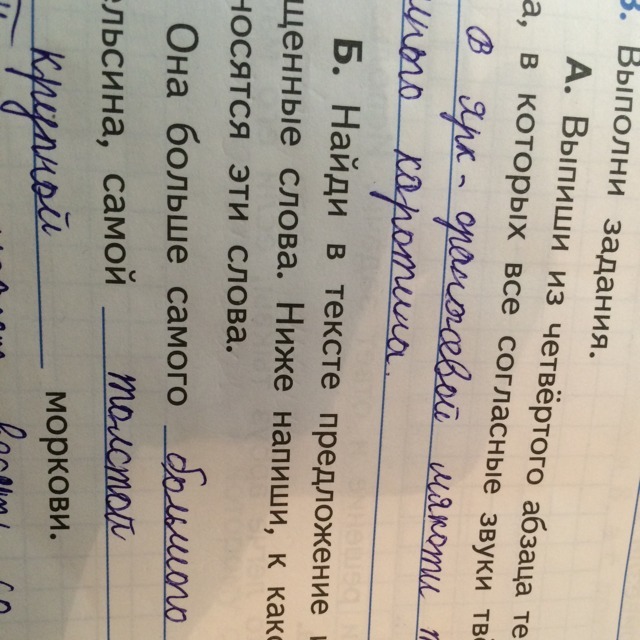 3. Выполни задания.
А. Выпиши из четвёртого абзаца те
а, в которых все согласные звуки твё
о ярк-оранжевой мякоти
много каротина.
Б. Найди в тексте предложение и
щенные слова. Ниже напиши, к како
носятся эти слова.
Она больше самого большого
ельсина, самой толстой
крупной моркови.